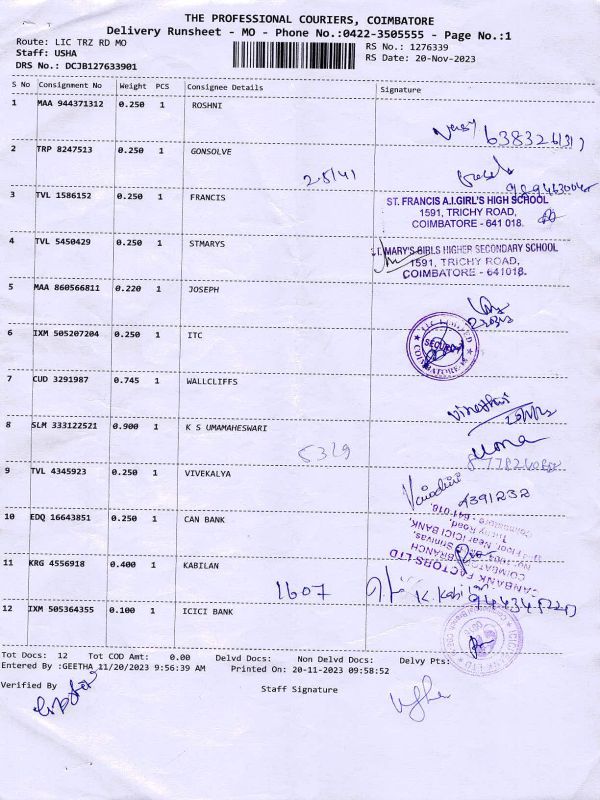 THE PROFESSIONAL COURIERS, COIMBATORE
Delivery Runsheet - MO - Phone No.:0422-3505555 - Page No.:1
Route: LIC TRZ RD MO
Staff: USHA
DRS No.: DCJB127633901
RS No.: 1276339
RS Date: 20-Nov-2023
S No Consignment No Weight PCS Consignee Details Signature
1 MAA 944371312 0.250 1 ROSHNI
2 TRP 8247513 0.250 1 GONSOLVE
25/41
3 TVL 1586152 0.250 1 FRANCIS
ST. FRANCIS A.I.GIRL'S HIGH SCHOOL
1591, TRICHY ROAD,
COIMBATORE - 641 018.
4 TVL 5450429 0.250 1 STMARYS
MARY'S GIRLS HIGHER SECONDARY SCHOOL
1591, TRICHY ROAD,
COIMBATORE - 641018.
5 MAA 860566811 0.220 1 JOSEPH
6 IXM 505207204 0.250 1 ITC
ITC LIMITED
SECURITY
COIMBATORE
7 CUD 3291987 0.745 1 WALLCLIFFS
8 SLM 333122521 0.900 1 K S UMAMAHESWARI
5329
9 TVL 4345923 0.250 1 VIVEKALYA
10 EDQ 16643851 0.250 1 CAN BANK
CANBANK FACTORS LTD
COIMBATORE BRANCH
Floor, Near ICICI BANK,
Trichy Road,
Coimbatore - 641-018.
11 KRG 4556918 0.400 1 KABILAN
1607
12 IXM 505364355 0.100 1 ICICI BANK
Tot Docs: 12 Tot COD Amt: 0.00 Delvd Docs: Non Delvd Docs: Delvy Pts:
Entered By :GEETHA 11/20/2023 9:56:39 AM Printed On: 20-11-2023 09:58:52
Verified By
Staff Signature